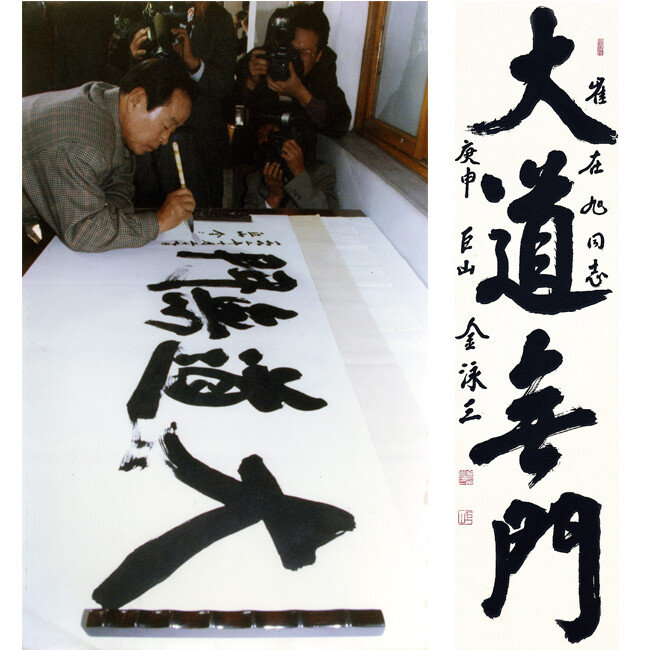 大道無門
崔在旭同志
大道無門
庚申 巨山 金泳三